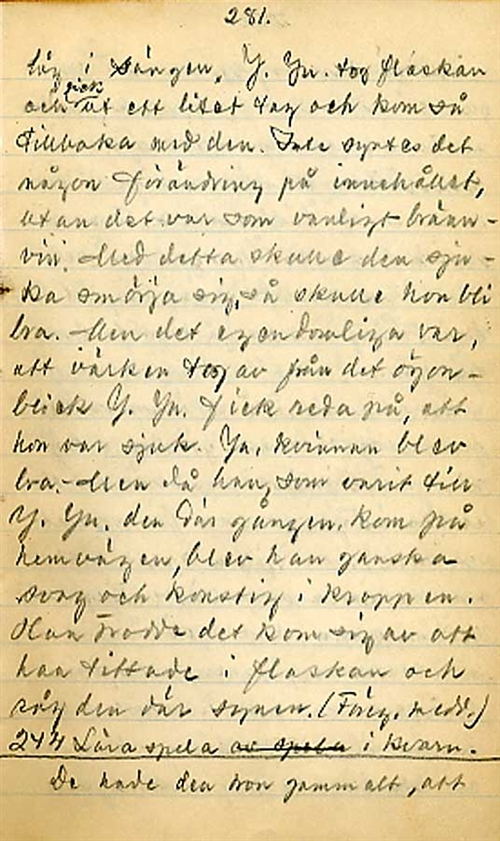 281.
låg i sängen. Y. Yn. tog flaskan
och gick ut ett litet tag och kom så
tillbaka med den. Inte syntes det
någon förändring på innehållet,
utan det var som vanligt bränn-
vin. Med detta skulle den sju-
ka smörja sig, så skulle hon bli
bra. Men det egendomliga var,
att värken tog av från det ögon-
blick Y. Yn. fick reda på, att
hon var sjuk. Ja, kvinnan blev
bra. Men då han, som varit till
Y. Yn. den där gången, kom på
hemvägen, blev han ganska
svag och konstig i kroppen.
Han trodde det kom sig av att
han tittade i flaskan och
såg den där synen. (Föreg. medd.)
244 Lära spela av spela i kvarn.
De hade den tron gammalt, att